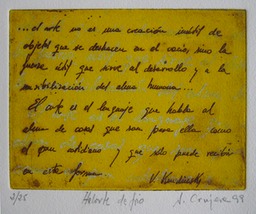 ...el arte no es una creación inútil de
objetos que se deshacen en el vacío, sino la
fuerza útil que sirve al desarrollo y a la
sensibilización del alma humana...
El arte es el lenguaje que habla al
alma de cosas que son para ella como
el pan cotidiano y que sólo puede recibir
en esta forma.
V. Kandinsky
2/25 A. Crujera 99